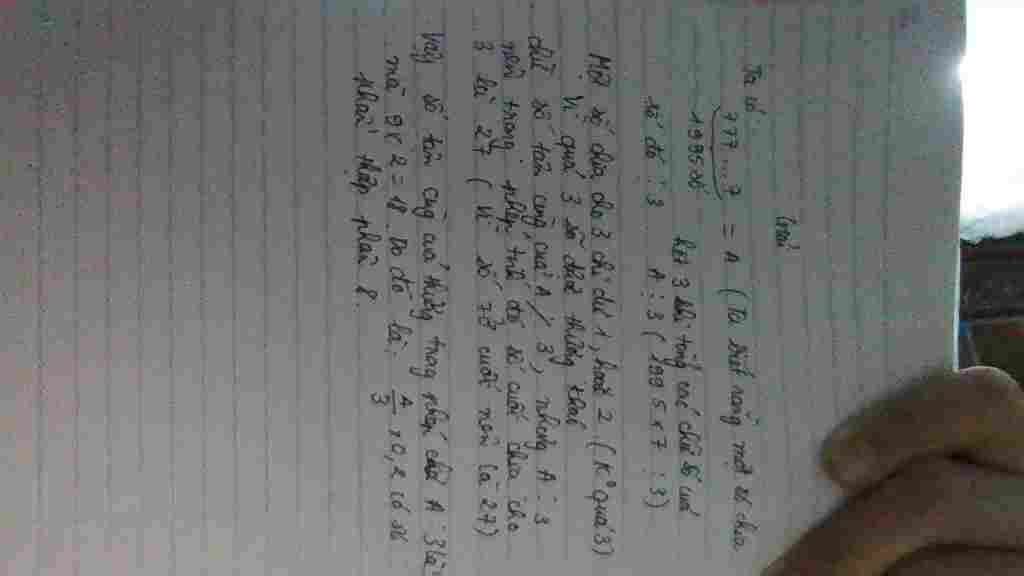 Giải
Ta có:
777...7 = A (Ta biết rằng một số chia
1995 số
hết 3 khi tổng các chữ số của
số đó ⋮ 3 A ⋮ 3 (1995 x 7 ⋮ 3)
Một số chia cho 3 chỉ dư 1, hoặc 2 (K° quá 3)
Vì quá 3 sẽ thương
chữ số tận cùng của A / 3, nhưng A ⋮ 3
nên trong phép trừ đó số cuối chia cho
3 là 27 (Vì số 7 cuối nên là 27)
Vậy số tận cùng của thương trong phép chia A : 3 là
mà 9 x 2 = 18. Do đó là: A/3 x 0,2 có số
thập phân 8.